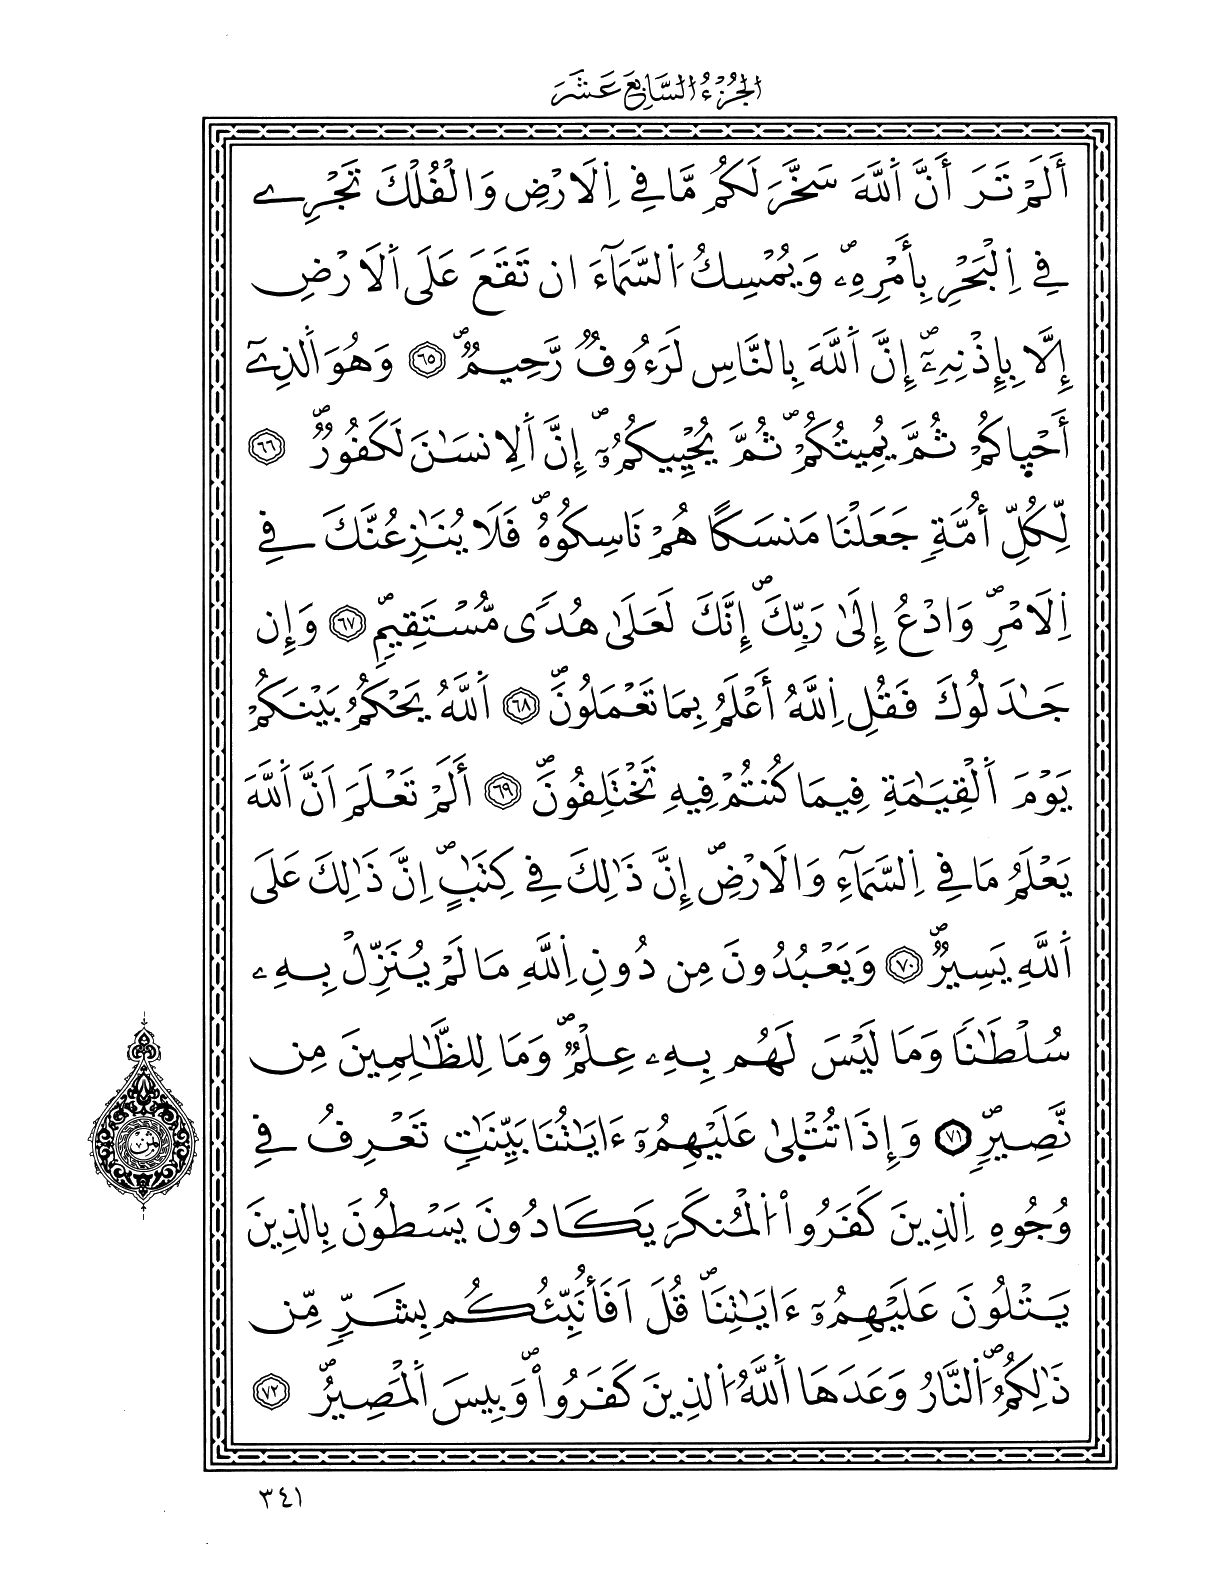 الجُزْءُ السَّابِعَ عَشَرَ
أَلَمْ تَرَ أَنَّ اَ۬للَّهَ سَخَّرَ لَكُم مَّا فِے اِ۬لَارْضِ وَالْفُلْكَ تَجْرِے
فِے اِ۬لْبَحْرِ بِأَمْرِهِۦۖ وَيُمْسِكُ اُ۬لسَّمَآءَ ان تَقَعَ عَلَى اَ۬لَارْضِ
إِلَّا بِإِذْنِهِۦٓۖ إِنَّ اَ۬للَّهَ بِالنَّاسِ لَرَءُوفٞ رَّحِيمٞۖ ٦٥ وَهُوَ اَ۬لذِےٓ
أَحْي۪اكُمْ ثُمَّ يُمِيتُكُمْۖ ثُمَّ يُحْيِيكُمُۥٓۖ إِنَّ اَ۬لِانسَٰنَ لَكَفُورٞۖ ٦٦
لِّكُلِّ أُمَّةٖ جَعَلْنَا مَنسَكاً هُمْ نَاسِكُوهُۖ فَلَا يُنَٰزِعُنَّكَ فِے
اِ۬لَامْرِۖ وَادْعُ إِلَىٰ رَبِّكَۖ إِنَّكَ لَعَلَىٰ هُدىٗ مُّسْتَقِيمٖۖ ٦٧ وَإِن
جَٰدَلُوكَ فَقُلِ اِ۬للَّهُ أَعْلَمُ بِمَا تَعْمَلُونَۖ ٦٨ اَ۬للَّهُ يَحْكُمُ بَيْنَكُمْ
يَوْمَ اَ۬لْقِيَٰمَةِ فِيمَا كُنتُمْ فِيهِ تَخْتَلِفُونَۖ ٦٩ أَلَمْ تَعْلَمَ اَنَّ اَ۬للَّهَ
يَعْلَمُ مَا فِے اِ۬لسَّمَآءِ وَالَارْضِۖ إِنَّ ذَٰلِكَ فِے كِتَٰبٍۖ اِنَّ ذَٰلِكَ عَلَى
اَ۬للَّهِ يَسِيرٞۖ ٧٠ وَيَعْبُدُونَ مِن دُونِ اِ۬للَّهِ مَا لَمْ يُنَزِّلْ بِهِۦ
سُلْطَٰناٗ وَمَا لَيْسَ لَهُم بِهِۦ عِلْمٞۖ وَمَا لِلظَّٰلِمِينَ مِن
نَّصِيرٖۖ ٧١ وَإِذَا تُتْل۪ىٰ عَلَيْهِمُۥٓ ءَايَٰتُنَا بَيِّنَٰتٖ تَعْرِفُ فِے
وُجُوهِ اِ۬لذِينَ كَفَرُواْ اُ۬لْمُنكَرَ يَكَادُونَ يَسْطُونَ بِالذِينَ
يَتْلُونَ عَلَيْهِمُۥٓ ءَايَٰتِنَاۖ قُلَ اَفَأُنَبِّئُكُم بِشَرّٖ مِّن
ذَٰلِكُمُۖ اُ۬لنَّارُ وَعَدَهَا اَ۬للَّهُ اُ۬لذِينَ كَفَرُواْۖ وَبِيسَ اَ۬لْمَصِيرُۖ ٧٢
٣٤١